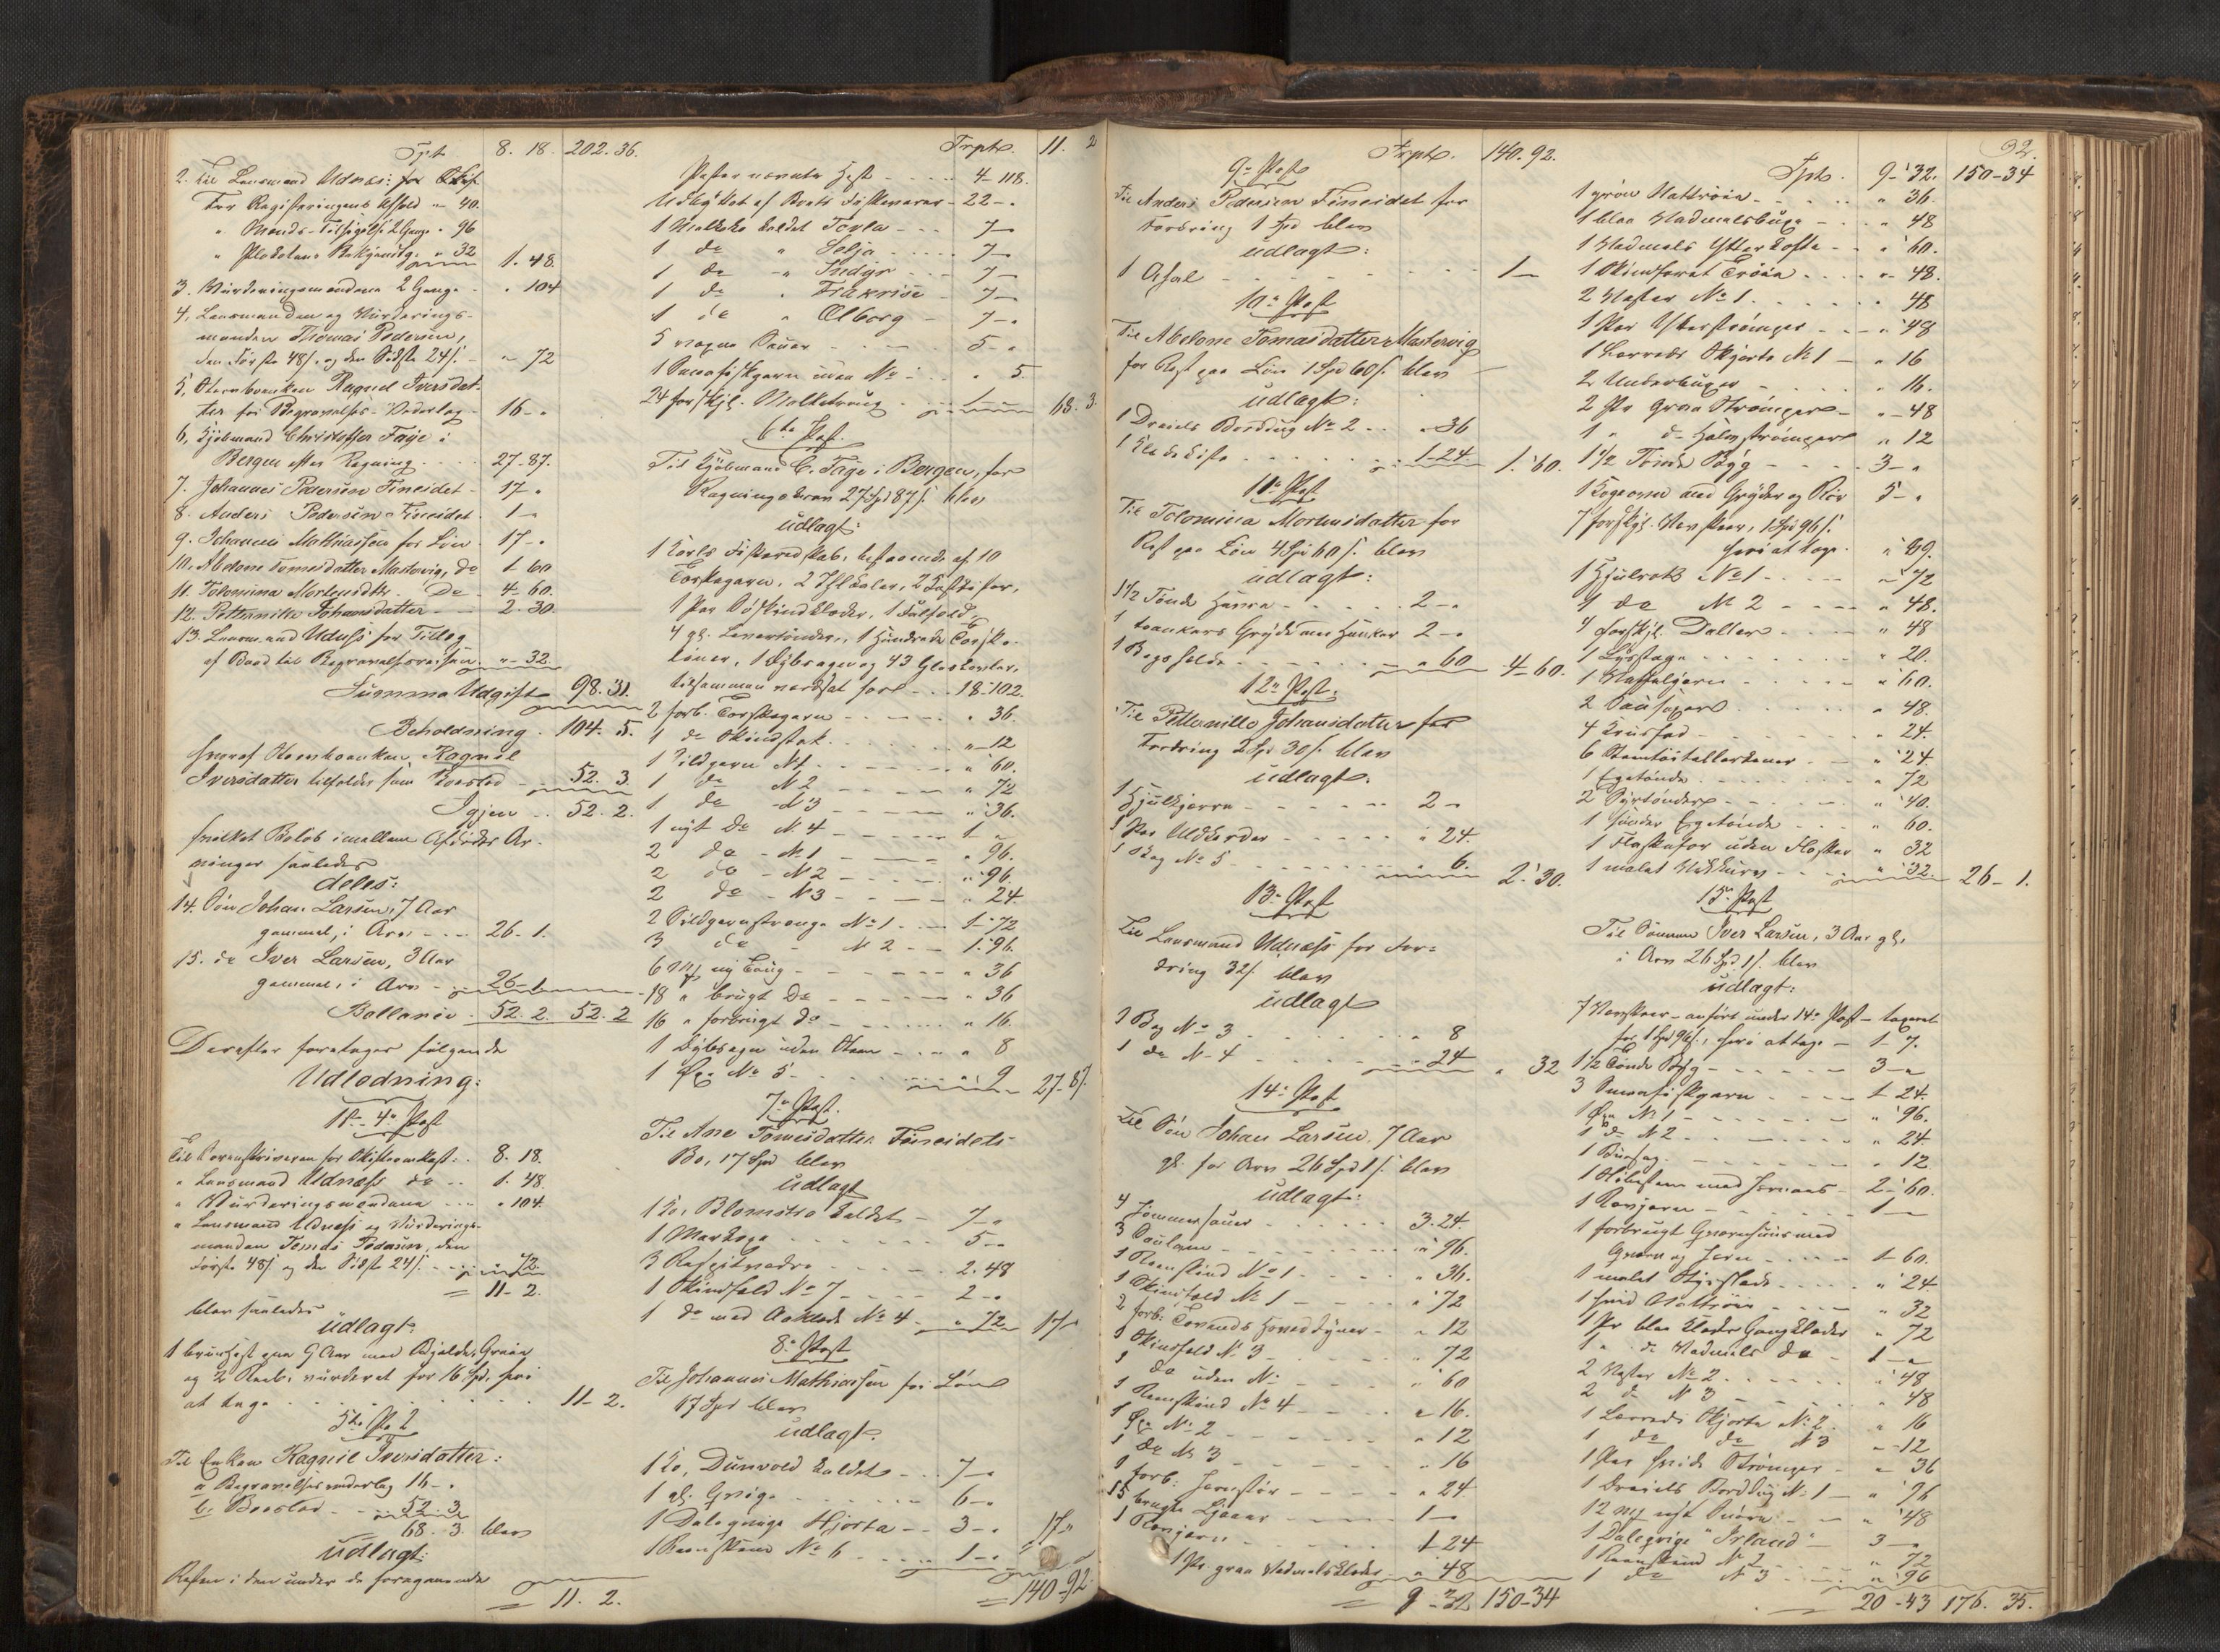 Trpt 8. 18. 202. 36.
2. Til Lensmand Udnæs: for
For Registeringens Afhold " 40.
" Mands-Tilsigelse 2 Gange " 96
" Plakatens Bekjendtg. " 32 1. 48.
3. Vurderingsmændene 2 Gange " 104
4, Lensmanden og Vurderings-
manden Thomas Pedersen,
den Første 48/. og den Sidste 24/. " 72
5, Stervboenken Ragnel Iversdat-
ter for Begravelses-Vederlag 16 - "
6, Kjøbmand Christoffer Faye i
Bergen efter Regning 27-87.
7. Johannes Pedersen Fineidet 17 "
8. Anders Pedersen Fineidet 1 -
9. Johannes Mathiassen for Løn 17 - "
10. Abelone Tomesdatter Mastervig, do 1 60
11. Tolomina Mortensdtr. Do 4 - 60.
12. Petternille Johansdatter 2 - 30
13. Lensmand Udnæs for Tillæg
af Baad til Begravelsesreisen " - 32
Summa Udgift 98. 31.
Beholdning 104. 5.
hvoraf Stervboenken Ragnil
Iversdatter beholder som Boeslod 52. 3
Igjen 52. 2.
hvilket Beløb imellem Afdødes Ar-
vinger saaledes
deles:
14. Søn Johan Larsen, 7 Aar
gammel, i Arv 26. 1.
15. do Iver Larsen, 3 Aar
gammel, i Arv 26 - 1
Ballance 52. 2. 52. 2
Derefter foretages følgende
Udlodning:
1ste - 4de Post
Til Sorenskriveren for Skifteomkost. 8. 18.
" Lensmand Udnæss do 1. 48.
" Vurderingsmændene " 104.
" Lensmand Udnæss og Vurderings-
manden Tomas Pedersen, den
Første 48/ og den Sidste 24/. " 72.
= 11 - 2.
blev saaledes
udlagt:
1 brun Hest 9 Aar med Bjelde, Grime
og 2 Reeb, vurderet for 16 Spd, heri
at tage 11 - 2.
5te Post
Til Enken Ragnil Iversdatter:
a Begravelsesvederlag 16 - "
b. Boeslod 52. 3
68. 3. blev
udlagt:
Resten i den under de foregaaende
= 11. 2.
Trpt. 11. 2
Poster nævnte Hest 4 - 118.
Udbyttet af Boets Fiskevarer 22 - "
1 Malkeko kaldet Tovla 7 -
1 do " Selja 7 -
1 do " 7 -
1 do " Fakrise 7 -
1 do " Elborg 7 - "
5 voxne Sauer 5 - "
1 uden No " 5.
24 forskjl. Melketraug 1 - 68. 3
6te Post.
Til Kjøbmand C. Faye i Bergen, for
Regningskrav 27 Spd 87/. blev
udlagt:
1 Karls Fiskeredskab, bestaaende af 10
Torskegarn, 2 Iflekaler, 2
1 Par Søskindklæder, 1
4 gl. Levertønder, 1 Hundrede Torske-
liner, 1 Dybsagn og 43 Glaskavler,
tilsammen værdsat for 18 - 102.
2 forb. Torskegarn " 36
1 do Skindstak " - 12
1 Sildgarn N 1 " 60.
1 do N 2 " 72
1 do - N 3 " 36.
1 nyt do N 4 1 "
2 do - No 1 " 96.
2 do - N 2 " 96.
2 do - N 3 " 24
2 Sildgarnstrænge No 1 1 - 72
3 do - N 2 1. 96.
6 ny Toug " 36
18 " brugt do " 36
16 " forbrugt do " 16.
1 Dybsagn uden Steen " 8
1 Øxe No 5 " 9 27 - 87
7de Post.
Til Ane Tomesdatter Fineidets
Bo, 17 Spd blev
udlagt
1 Ko, Blomstro kaldet 7 - "
1 5 -
3 2. 48
1 Skindfeld No 7 2 - "
1 do med Aaklæde No 4 " 72 17 "
8de Post
Til Johannes Mathiassen for Løn
17 Spd blev
udlagt.
1 Ko, Dunvold kaldet 7 - "
1 gl. Qvige 6 - "
1 Daleqvige Hjorta 3 - " 17 "
1 Reenskind No 6 1 - "
= 140 - 92.
Trpt. 140. 92.
9de Post
Til Anders Pedersen Fineidet for
Fordring 1 Spd blev
udlagt:
1 1 -
10de Post
Til Abelone Tomasdatter Mastervig
for Rest paa Løn 1 Spd 60/. blev
udlagt:
1 Dreiels Borddug No 2 " 36
1 Klædekiste 1 - 24 1. 60.
11te Post
Til Tolomina Mortensdatter for
Rest paa Løn 4 Spd 60/. blev
udlagt:
1 1/2 Tønde Havre 2 - "
1 Gryde med Hanker 2 - "
1 " 60 4 - 60.
12te Post.
Til Petternille Johansdatter for
Fordring 2 Spd 30/. blev
udlagt.
1 Hjulkjærre 2 -
1 Par Uldkarder " 24.
1 Bog No 5 " 6. 2. 30.
13de Post
Til Lensmand Udnæss for For-
dring 32/. blev
udlagt
1 Bog No 3 " 8
1 do N 4 " 24 " 32
14de Post
Til Søn Johan Larsen, 7 Aar
gl. for Arv 26 Spd 1/. blev
udlagt:
4 3. 24.
3 " 96.
1 Reenskind No 1 " 36.
1 Skindfeld N 1 " 72
2 forb. Hoveddyner " 12
1 Skindfeld N 3 " 72
1 do uden No " 60
1 Reenskind No 4 " 16.
1 Øxe No 2 " 12
1 do N 3 " 16
1 forb. " 24
15 brugte Ljaaer 1 -
1 1 - 24
1 Pr. graa Vadmelsklæder " 48
= 9 - 32 150 - 34
32.
Trpt. 9 - 32. 150 - 34
1 grøn Nattrøie " 36.
1 blaa Vadmelsbuxe " 48
1 Vadmels Ytterkofte " 60.
1 Skindforet Trøie " 48.
2 Vester No 1 " 48
1 Par Ytterstrømper " 48
1 Lærreds Skjorte N 1 " 16
2 Underbuxer " 16.
2 Par graa Strømper " - 48
1 " do Halvstrømper " 12
1 1/2 Tønde Byg 3 - "
1 Kogeovn med Gryder og Rør 5 - "
7 forskjl. 1 Spd 96/.
heri at tage " 89.
1 Hjulrok No 1 " 72
1 do N 2 " 48.
4 forskjl. Daller " 48
1 Lysstage " 20.
1 Vaffeljern " 60.
2 Sausaxer " 48.
4 Kruusfad " 24.
6 Steentøitallerkener " 24.
1 Egetønde " 72
2 " 40.
1 Egetønde " 60.
1 Flaskefor uden Flasker " 32
1 malet " 32. 26 - 1.
15de Post
Til Sønnen Iver Larsen, 3 Aar gl.
i Arv 26 Spd 1/. blev
udlagt:
7 anført under 14de Post - taxeret
for 1 Spd 96/., heri at tage 1 - 7.
1 1/2 Tønde Byg 3 - "
3 1 - 24.
1 Øxe N 1 " 96.
1 do N 2 " 24
1 " 12
1 2 - 60.
1 1 -
1 forbrugt Qvernhuus med
Qvern og Jern 1 - 60.
1 malet " 24
1 hvid Nattrøie " 32
1 Pr blaa Klædes Gangklæder " 72
1 " do Vadmels do 1 - "
2 Vester No 2 " 48
2 do N 3 " 48
1 Lærreds Skjorte No 2 " 16
1 do do N 3 " - 12
1 Par hvide Strømper " 36
1 Dreiels Borddug N 1 " 96
12 " 48
1 Daleqvige "Irland" 3 -
1 Reenskind N 2 " 72
1 do N 3 " 96
= 20 - 43 176. 35.